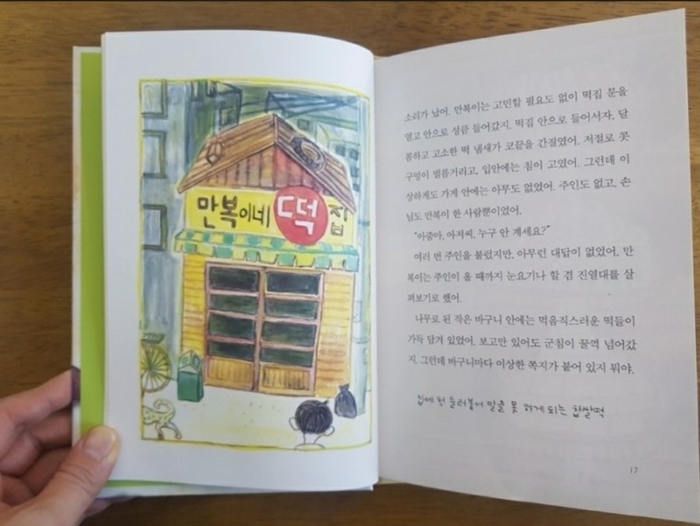 만복이네 떡 집
소리가 났어. 만복이는 고민할 필요도 없이 떡집 문을
열고 안으로 성큼 들어갔지. 떡집 안으로 들어서자, 달
콤하고 고소한 떡 냄새가 코끝을 간질였어. 저절로 콧
구멍이 벌름거리고, 입안에는 침이 고였어. 그런데 이
상하게도 가게 안에는 아무도 없었어. 주인도 없고, 손
님도 만복이 한 사람뿐이었어.
"아줌마, 아저씨, 누구 안 계세요?"
여러 번 주인을 불렀지만, 아무런 대답이 없었어. 만
복이는 주인이 올 때까지 눈요기나 할 겸 진열대를 살
펴보기로 했어.
나무로 된 작은 바구니 안에는 먹음직스러운 떡들이
가득 담겨 있었어. 보고만 있어도 군침이 꿀꺽 넘어갔
지. 그런데 바구니마다 이상한 쪽지가 붙어 있지 뭐야.
입에 척 들러붙어 말을 못 하게 되는 찹쌀떡
17